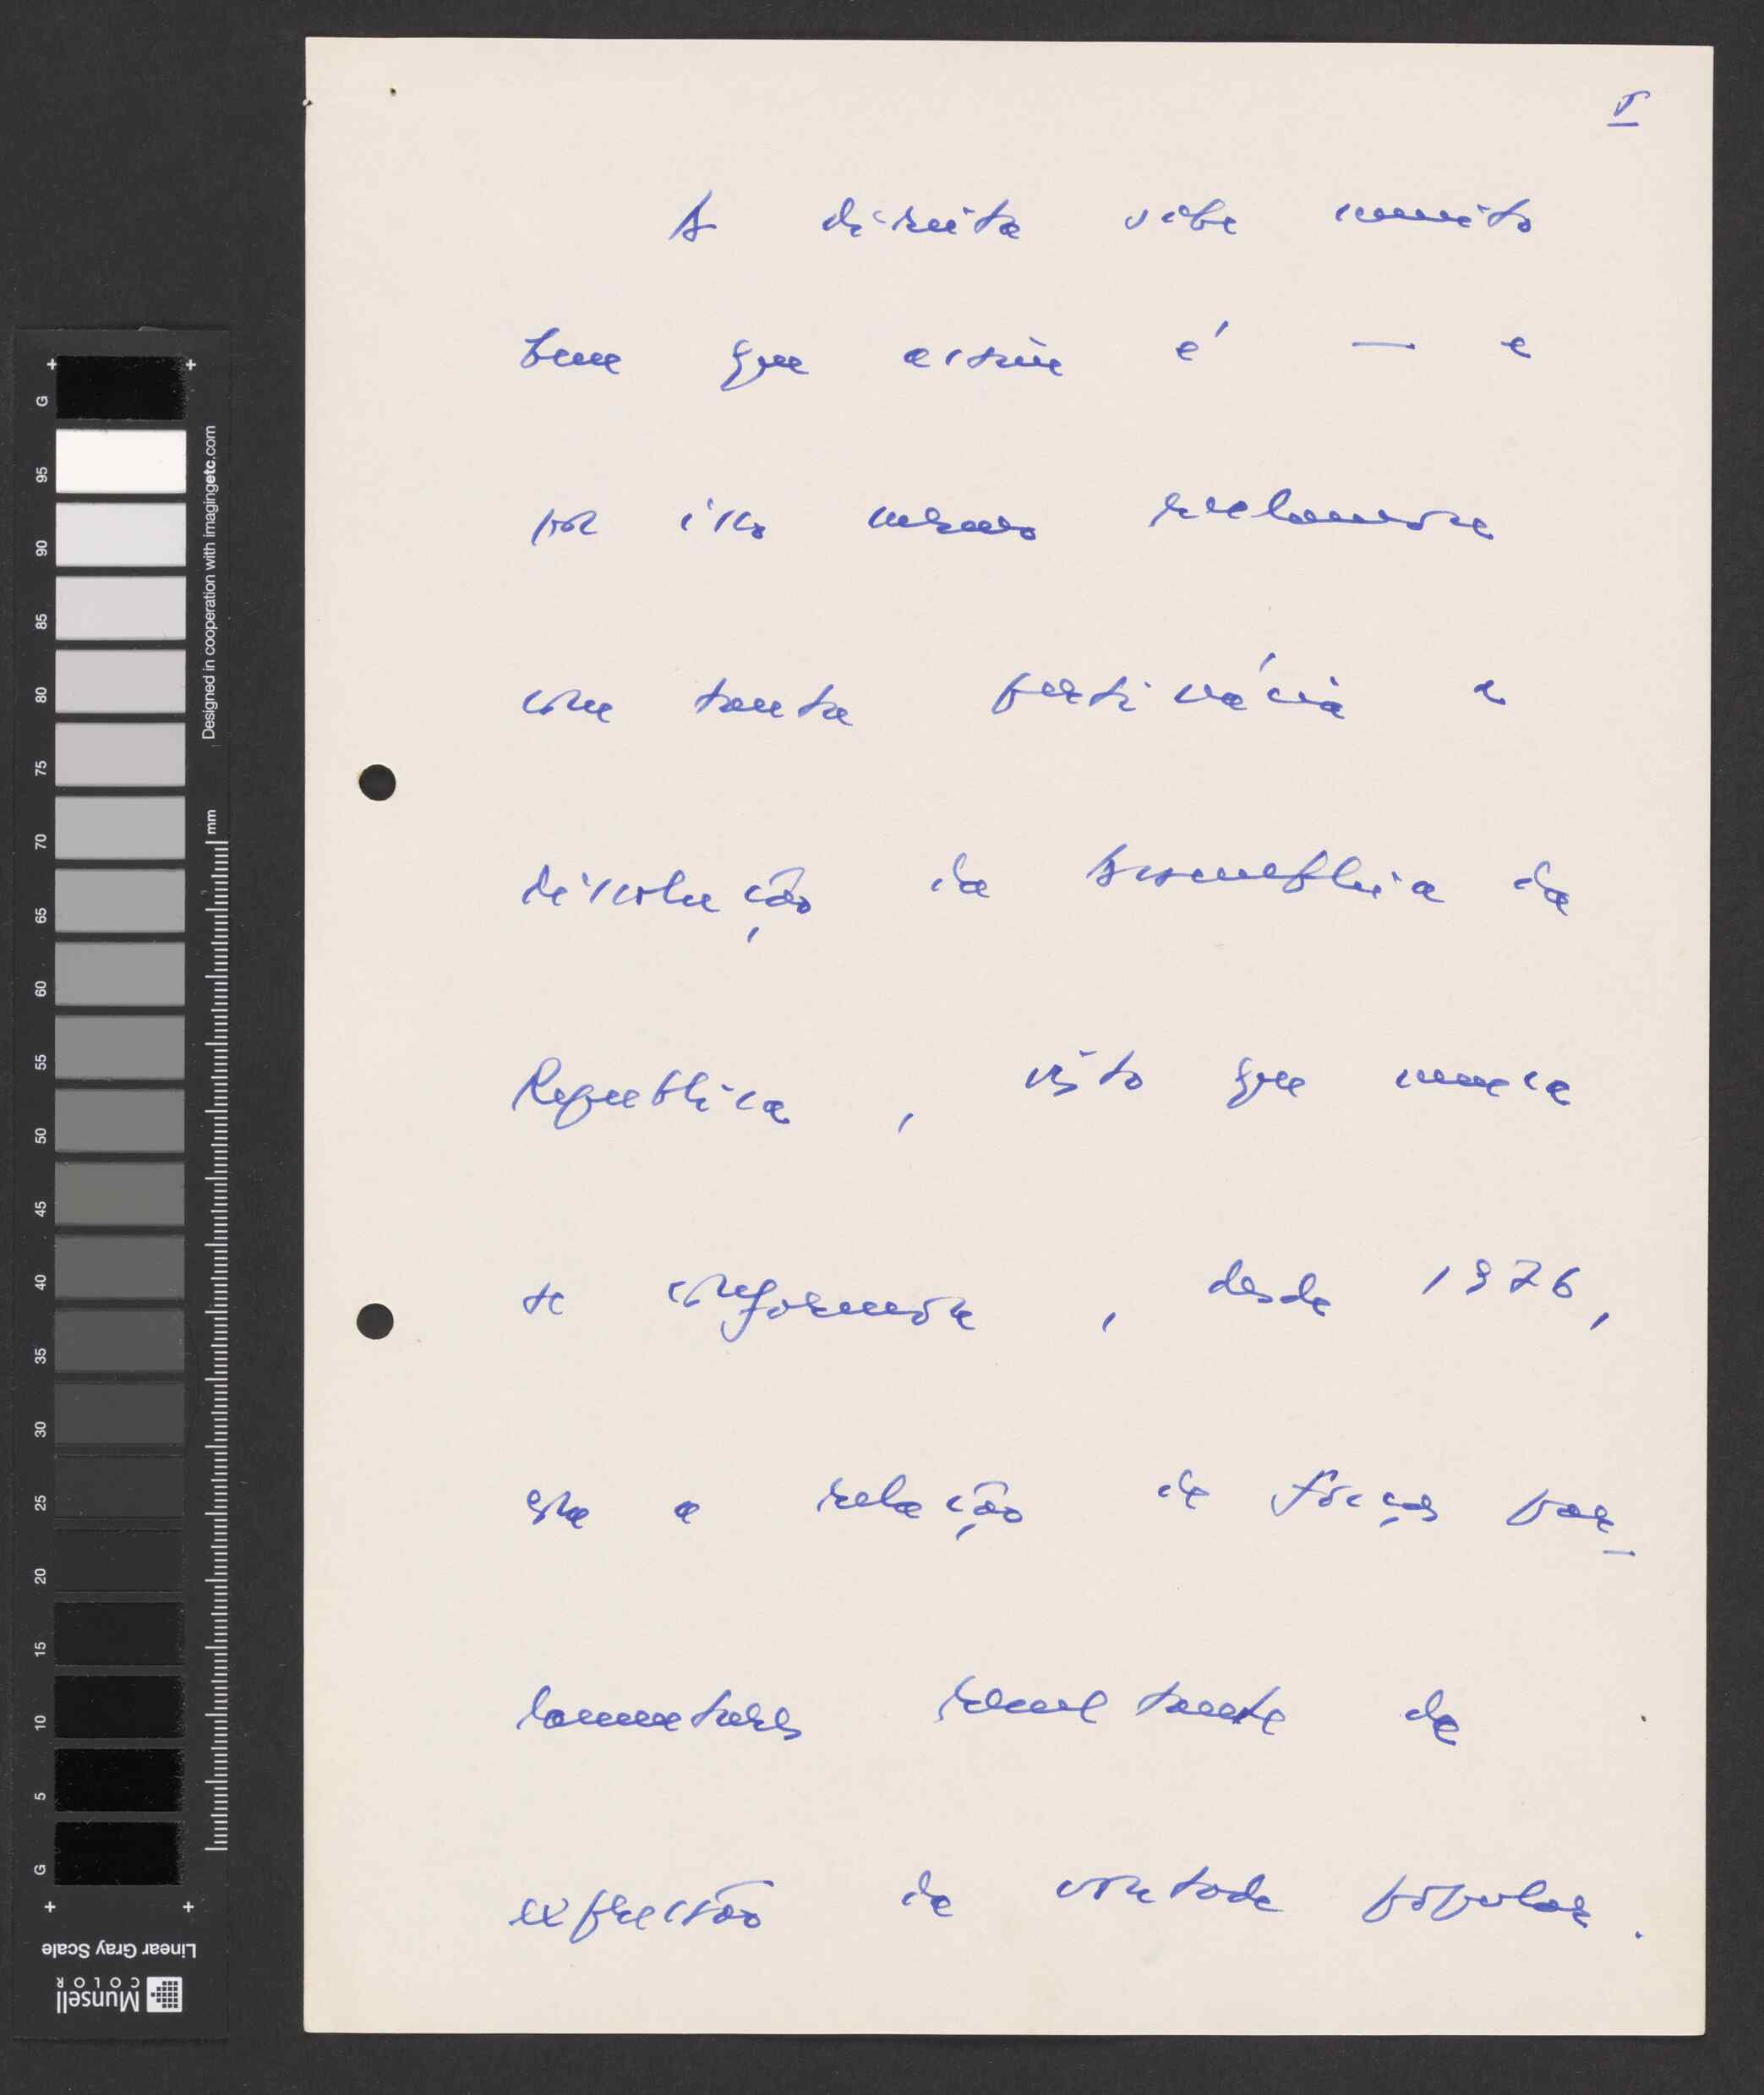 A direita sabe muito
bem que assim é — e
por isso mesmo reclamou
com tanta pertinácia a
dissolução da Assembleia da
Republica, visto que nunca
se conformou, desde 1976,
com a relação de forças par-
lamentares resultante da
expressão da vontade popular.
G 95 90 85 80 75 70 65 60 55 50 45 40 35 30 25 20 15 10 5 G
Designed in cooperation with imagingetc.com
mm
Linear Gray Scale
Munsell
COLOR